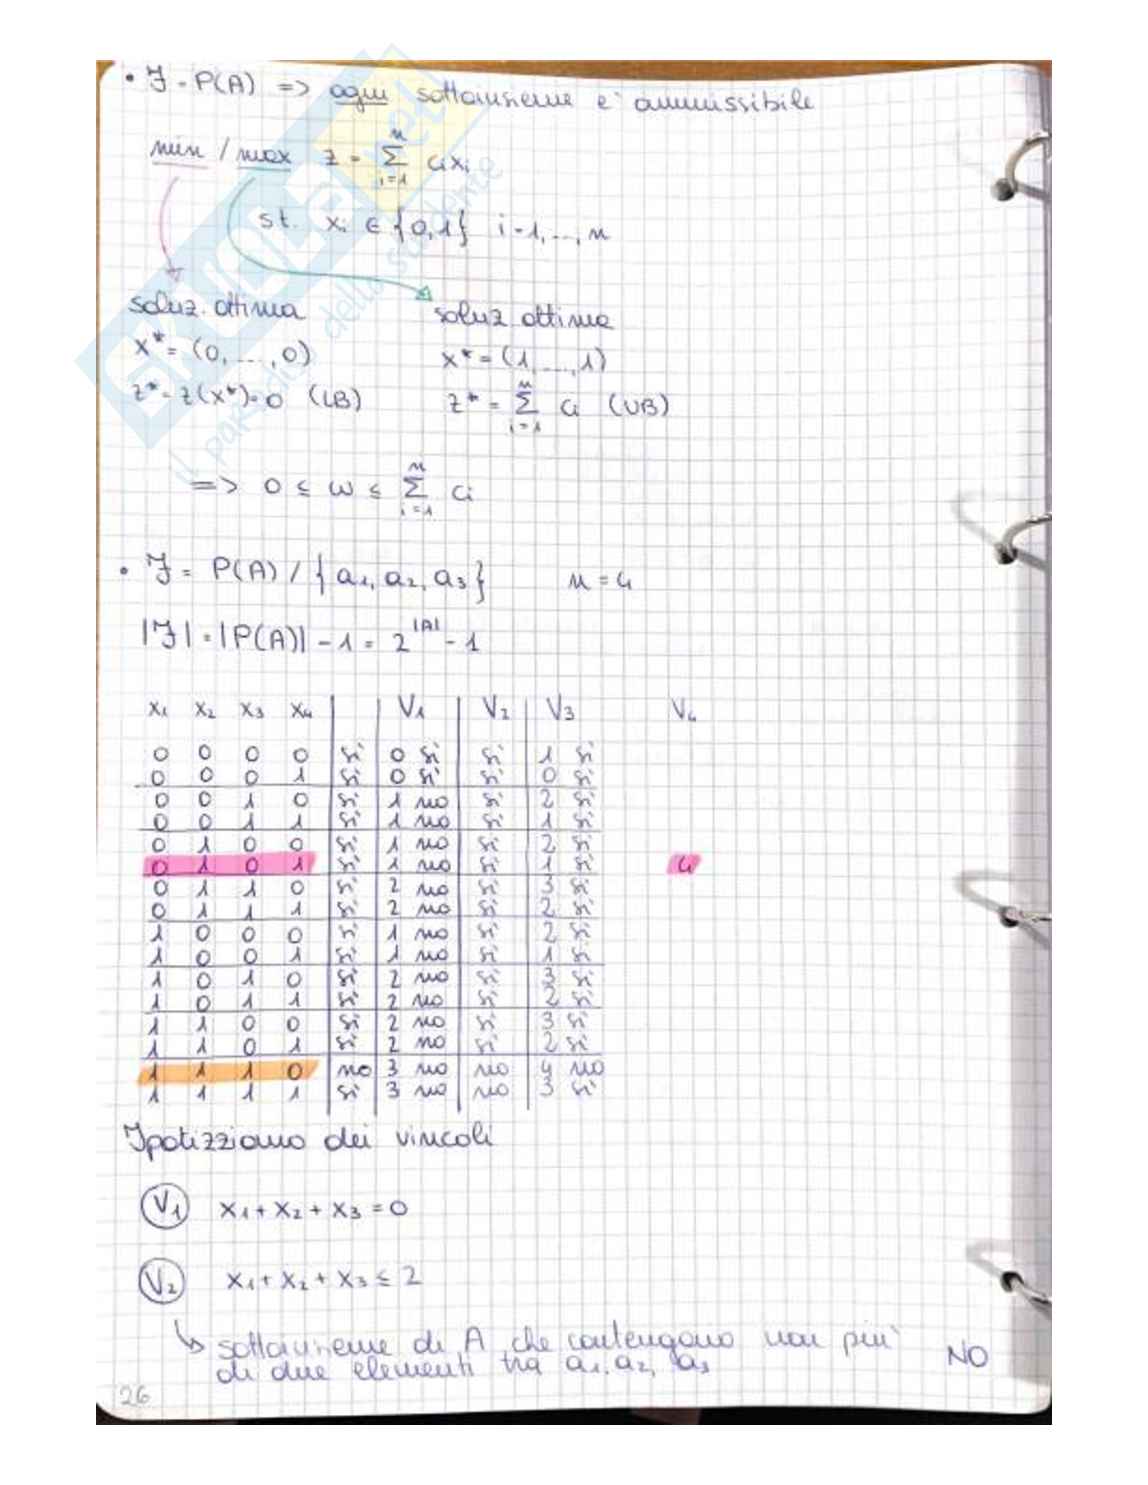 • F = P(A) => ogni sottoinsieme e' ammissibile
min / max z = Σ i=1 n cixi
st. xi ∈ {0,1} i=1,...,n
soluz. ottima soluz ottima
x* = (0,....,0) x* = (1,....,1)
z* = z(x*) = 0 (LB) z* = Σ i=1 n ci (UB)
=> 0 ≤ ω ≤ Σ i=1 n ci
• F = P(A) / {a1, a2, a3} n = 4
|F| = |P(A)| - 1 = 2^|A| - 1
x1 x2 x3 x4 V1 V2 V3 V4
0 0 0 0 sì 0 sì sì 1 sì
0 0 0 1 sì 0 sì sì 0 sì
0 0 1 0 sì 1 no sì 2 sì
0 0 1 1 sì 1 no sì 1 sì
0 1 0 0 sì 1 no sì 2 sì
0 1 0 1 sì 1 no sì 1 sì 4
0 1 1 0 sì 2 no sì 3 sì
0 1 1 1 sì 2 no sì 2 sì
1 0 0 0 sì 1 no sì 2 sì
1 0 0 1 sì 1 no sì 1 sì
1 0 1 0 sì 2 no sì 3 sì
1 0 1 1 sì 2 no sì 2 sì
1 1 0 0 sì 2 no sì 3 sì
1 1 0 1 sì 2 no sì 2 sì
1 1 1 0 no 3 no no 4 no
1 1 1 1 sì 3 no no 3 sì
Ipotizziamo dei vincoli
V1 x1 + x2 + x3 = 0
V2 x1 + x2 + x3 ≤ 2
↳ sottoinsieme di A che contengono non piu'
di due elementi tra a1, a2, a3 NO
26
SKUOLA.net
il paradiso dello studente